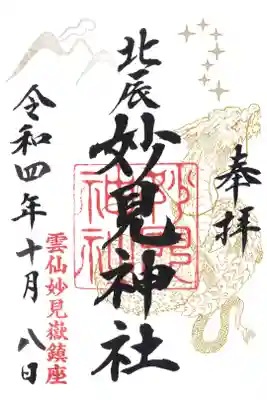 奉拝
北辰
妙見神社
妙見
神社
令和四年十月八日
雲仙妙見嶽鎮座